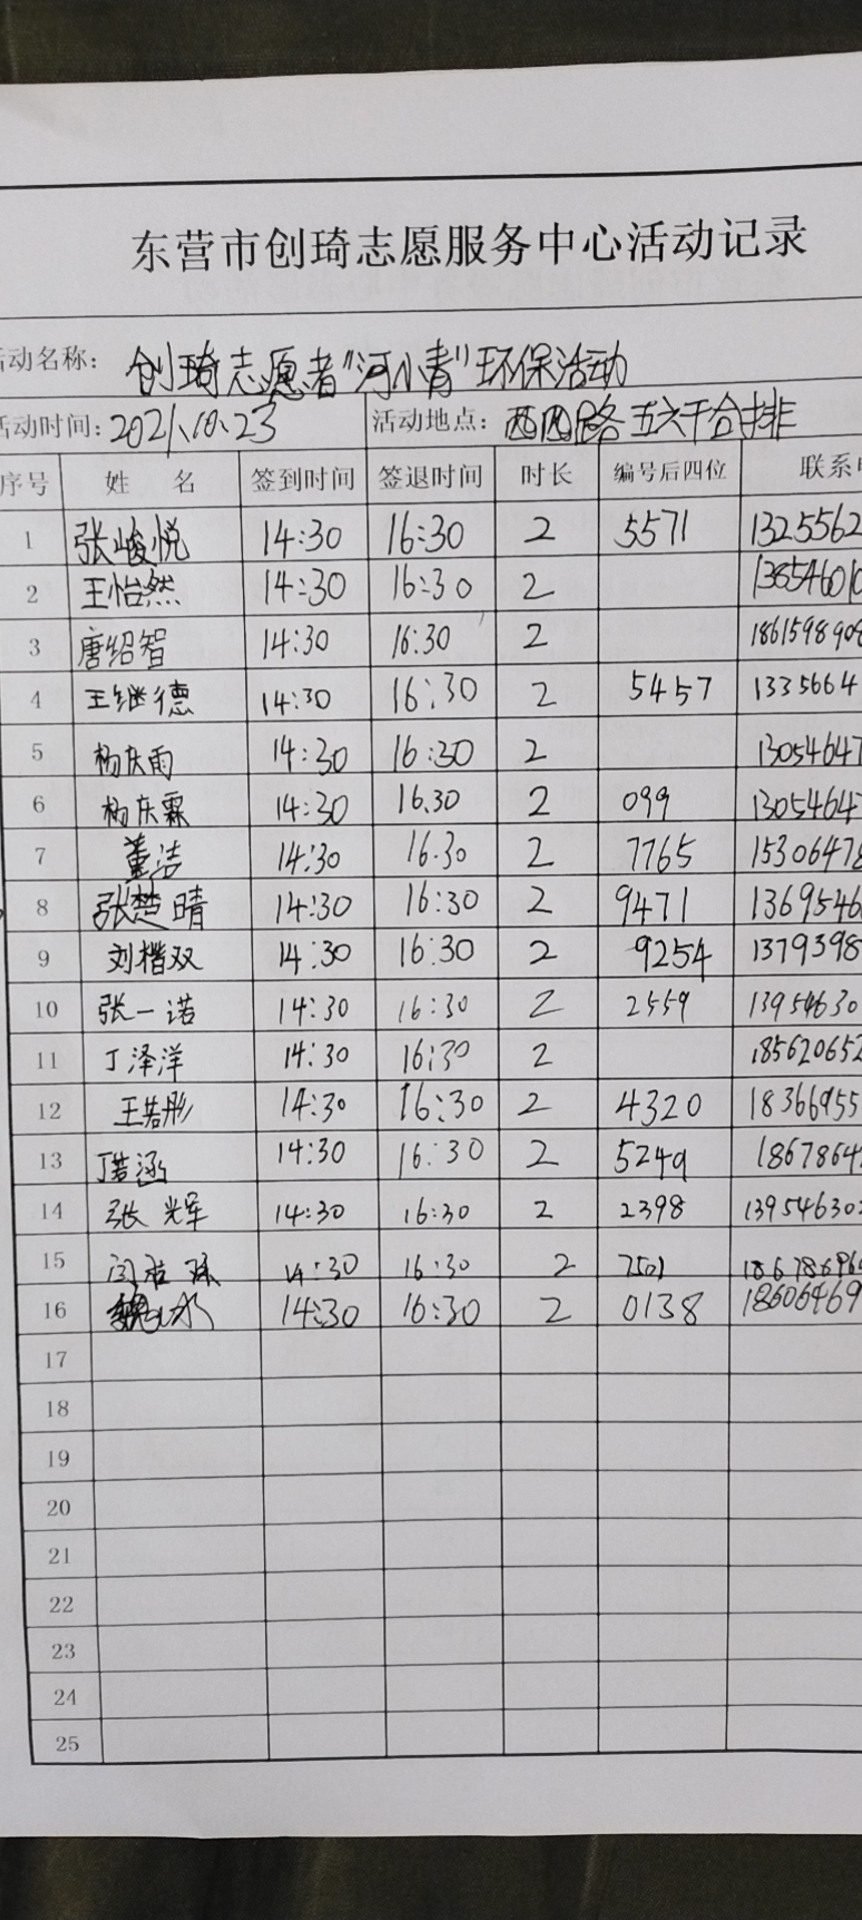 东营市创琦志愿服务中心活动记录
活动名称: 创琦志愿者"河小青"环保活动
活动时间: 2021.10.23 活动地点: 西四路五六干合排
序号 姓 名 签到时间 签退时间 时长 编号后四位 联系电
1 张峻悦 14:30 16:30 2 5571 1325562
2 王怡然 14:30 16:30 2 13854601
3 唐绍智 14:30 16:30 2 186159890
4 王继德 14:30 16:30 2 5457 1335664
5 杨庆雨 14:30 16:30 2 13054647
6 杨庆霖 14:30 16.30 2 099 13054647
7 董洁 14:30 16.30 2 7765 15306478
8 张楚晴 14:30 16:30 2 9471 1369546
9 刘楷双 14:30 16:30 2 9254 1379398
10 张一诺 14:30 16:30 2 2559 13954630
11 丁泽洋 14:30 16:30 2 185620652
12 王若彤 14:30 16:30 2 4320 18366955
13 丁若涵 14:30 16:30 2 5249 1867864
14 张辉 14:30 16:30 2 2398 139546302
15 14:30 16:30 2 7501 186786966
16 14:30 16:30 2 0138 18606469
17
18
19
20
21
22
23
24
25